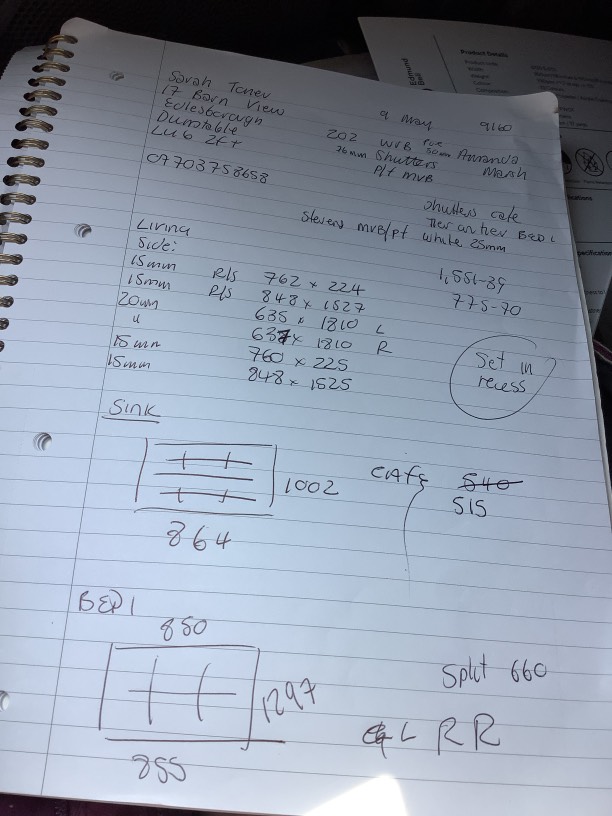 Edmund
Bell
Product Details
Sarah Toney
17 Barn View
Eddlesborough
Dunstable
LU6 2FT
07703758658
9 May 9160
202 WVB
76mm Shutters
P/t MVB
50mm Amanda
Marsh
Shutters cafe
Tier on tier BED 1
Stevens MVB/pt white 25mm
1,551-39
775-70
Living
Side:
15mm R/S 762 x 224
15mm R/S 848 x 1527
20mm 635 x 1810 L
" 637 x 1810 R
15mm 760 x 225
15mm 848 x 1525
Set in
recess
Sink
1002
864
CAFE 540
515
BED 1
850
1297
855
Split 660
L RR